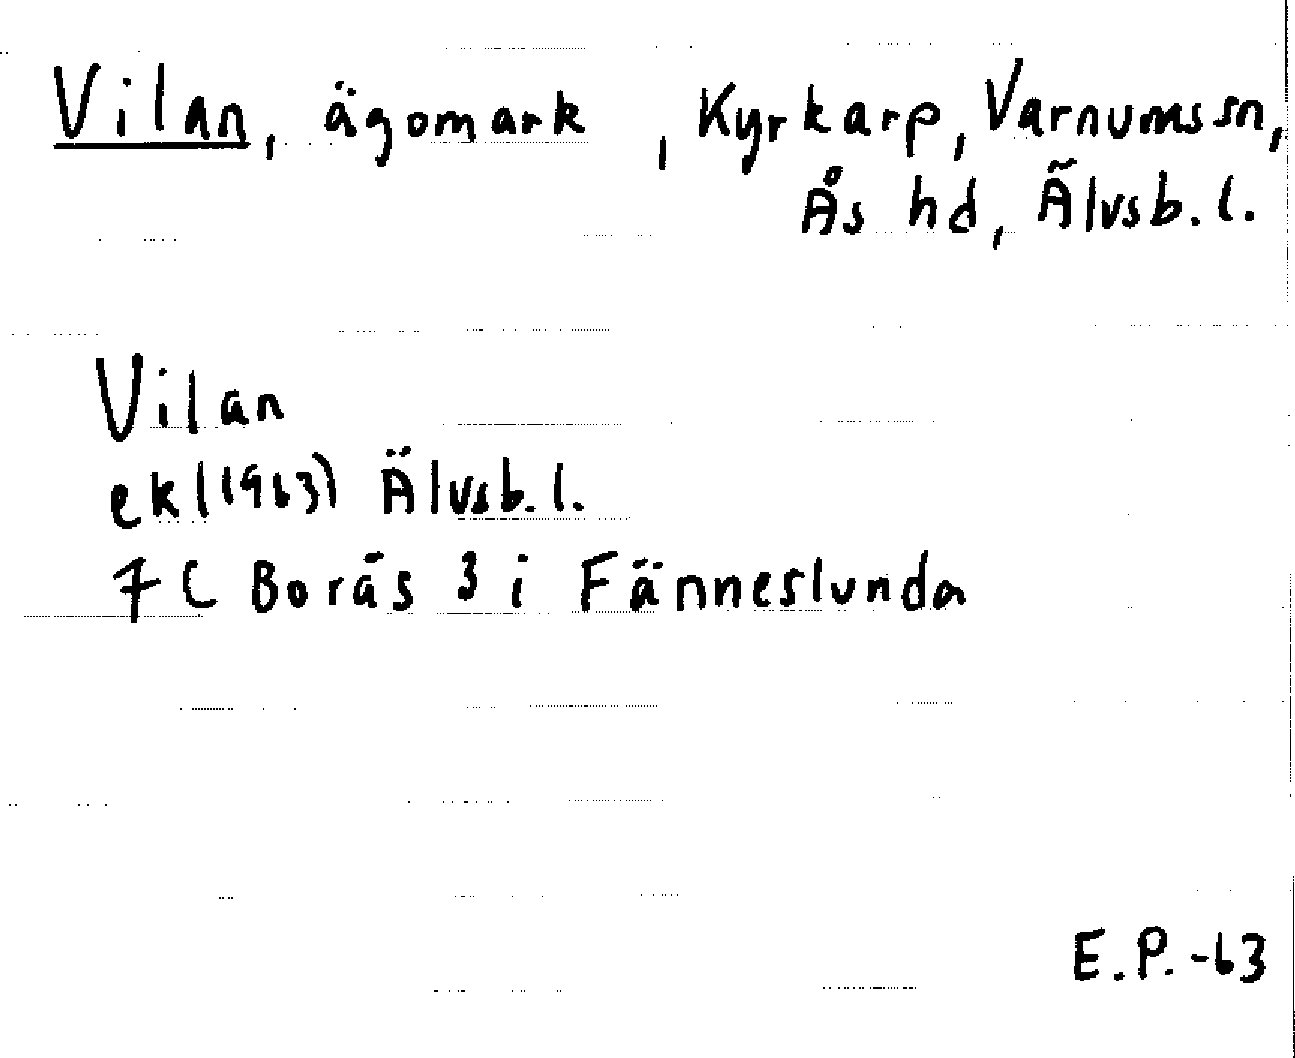 Vilan, ägomark , Kyrkarp, Varnums sn,
Ås hd, Älvsb. l.
Vilan
ekl(1963) Älvsb. l.
7C Borås 3 i Fänneslunda
E.P.-63